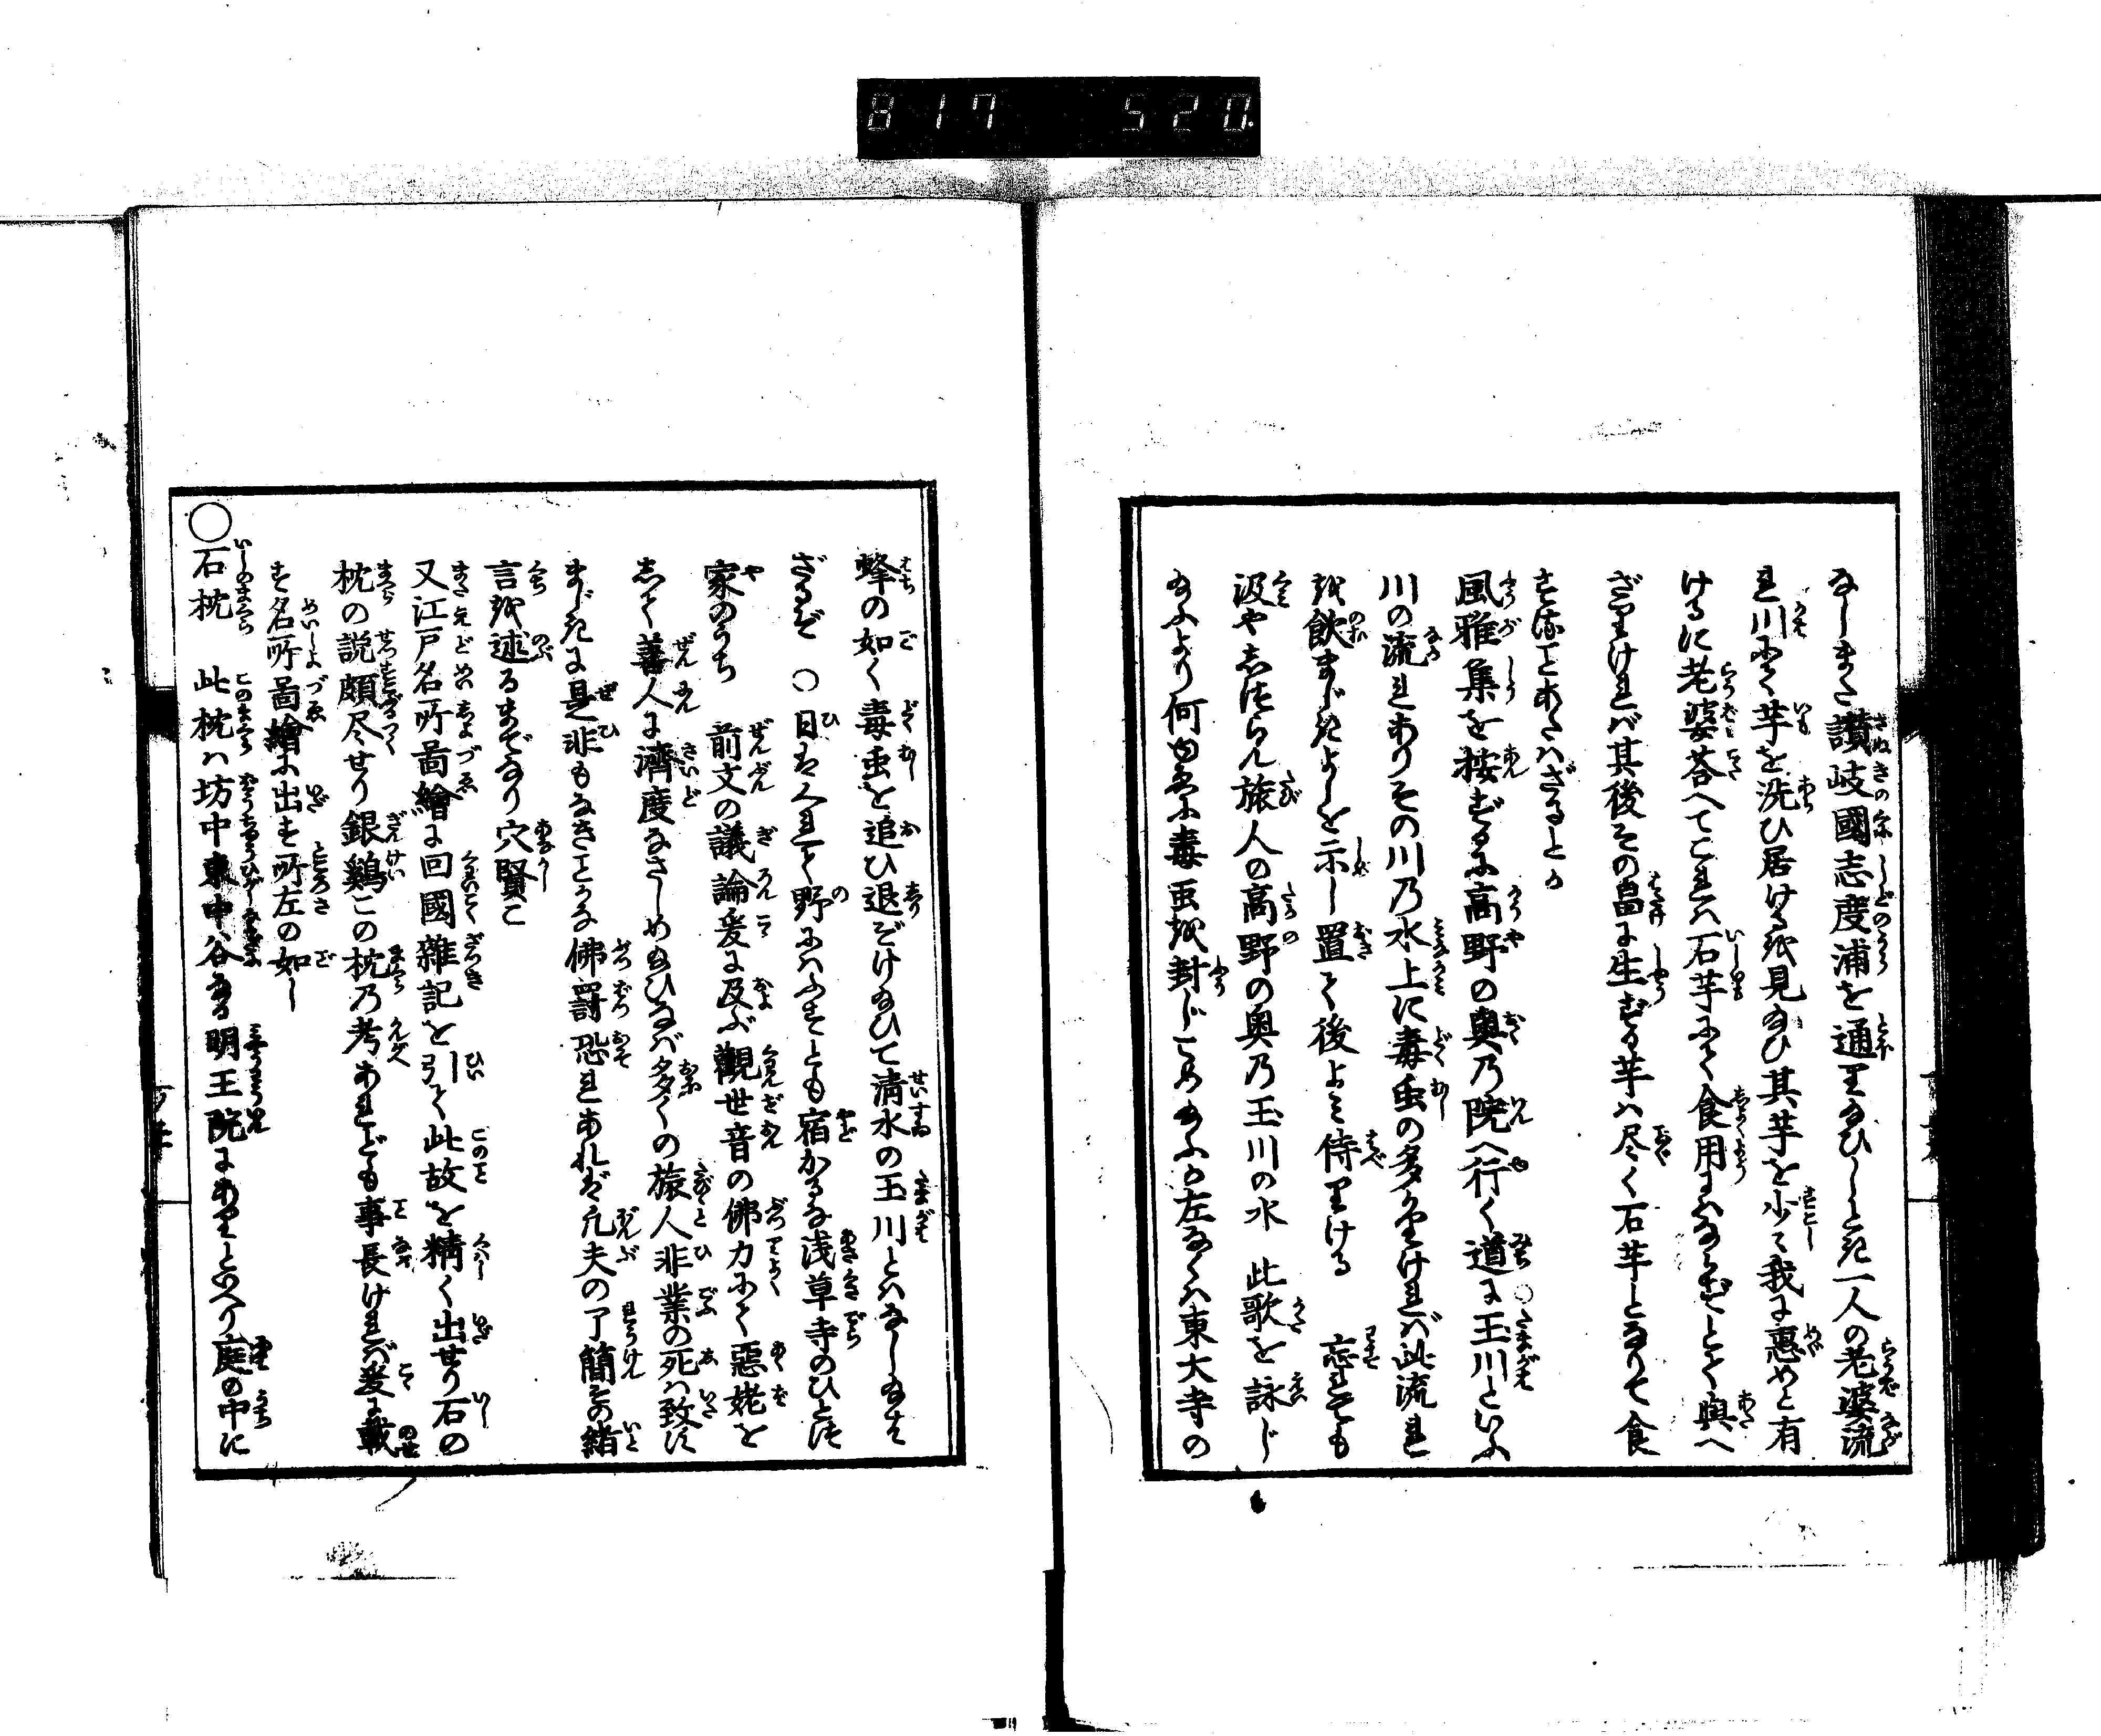 817 520.
なしまた讃岐國志度浦を通りたまひしとき一人の老婆流
れ川にて芋を洗ひ居けるを見たまひ其芋を少し我に惠めと有
けるに老婆荅へてこれハ石芋にて食用にハならずとて與へ
ざりければ其後その畠に生ずる芋ハ尽く石芋となりて食
することあたハざるとか
風雅集を按ずるに高野の奥乃院へ行く道に玉川といふ
川の流れありその川乃水上に毒虫の多かりければ此流れ
を飲まじきよしを示し置て後よミ侍りける 忘れても
汲やしつらん旅人の高野の奥乃玉川の水 此歌を詠じ
たまふより何ゆゑに毒虫を封じこめたまふか左なくハ東大寺の
蜂の如く毒虫を追ひ退ぞけたまひて清水の玉川とハなしたまは
ざるぞ ○日は人れて野にハふすとも宿かるな浅草寺のひとつ
家のうち 前文の議論爰に及ぶ觀世音の佛力にて惡姥を
して善人に濟度なさしめたまひなば多くの旅人非業の死ハ致す
まじきに是非もなきことかな佛罸恐れあれど凢夫の了簡その緒
言を述るまでなり穴賢こ
又江戸名所啚繪に回國雜記を引て此故を精く出せり石の
枕の説頗尽せり銀鷄この枕乃考あれども事長ければ爰に載
せず名所啚繪に出す所左の如し
○石枕 此枕ハ坊中東中谷なる明王院にありといへり庭の中に